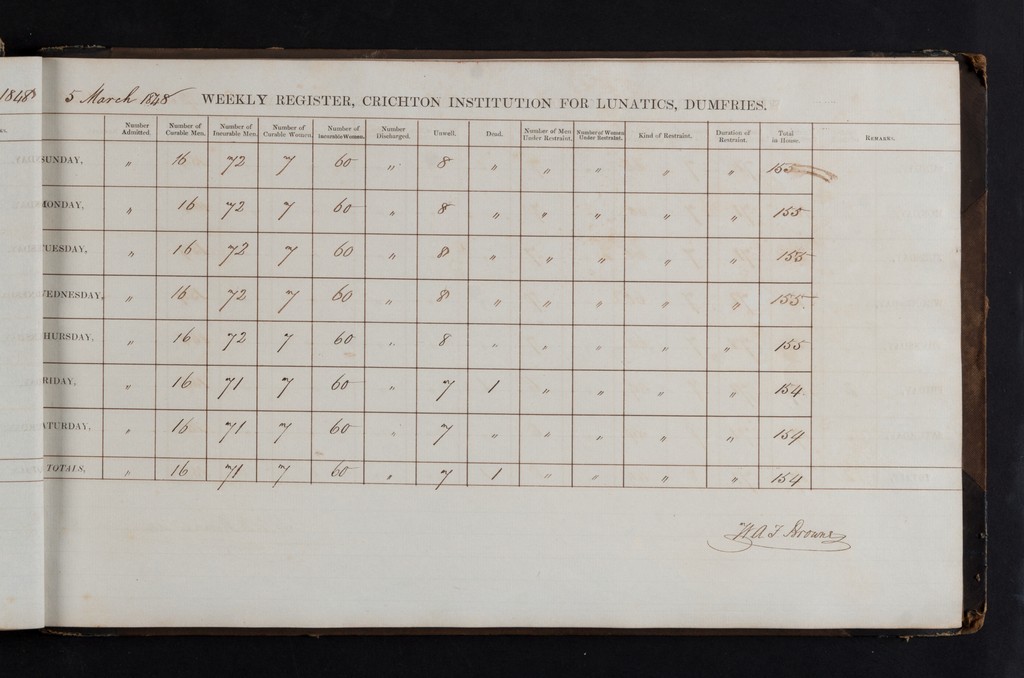 1848
5 March 1848 WEEKLY REGISTER, CRICHTON INSTITUTION FOR LUNATICS, DUMFRIES.
Number Admitted. Number of Curable Men. Number of Incurable Men. Number of Curable Women. Number of Incurable Women. Number Discharged. Unwell. Dead. Number of Men Under Restraint. Number of Women Under Restraint. Kind of Restraint. Duration of Restraint. Total in House. REMARKS.
SUNDAY, " 16 72 7 60 " 8 " " " " " 155
MONDAY, " 16 72 7 60 " 8 " " " " " 155
TUESDAY, " 16 72 7 60 " 8 " " " " " 155
WEDNESDAY, " 16 72 7 60 " 8 " " " " " 155
THURSDAY, " 16 72 7 60 " 8 " " " " " 155
FRIDAY, " 16 71 7 60 " 7 1 " " " " 154
SATURDAY, " 16 71 7 60 " 7 " " " " " 154
TOTALS, " 16 71 7 60 " 7 1 " " " " 154
W A F Browne